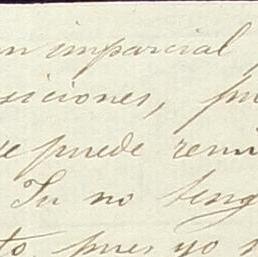 un imparcial
siciones, pu
se puede remi
Tu no teng
to, pues yo n